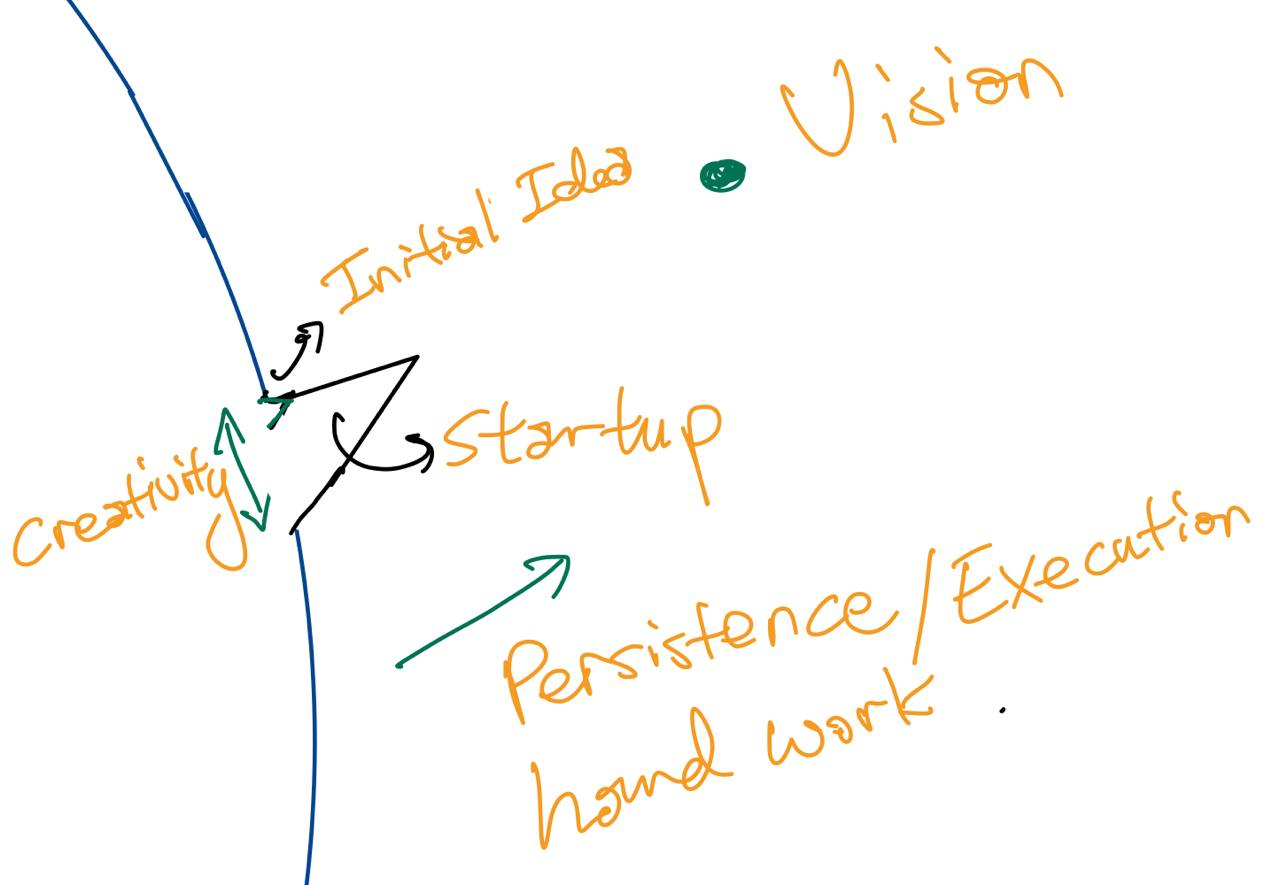 Vision
Initial Idea
Startup
Creativity
Persistence/Execution
hard work.